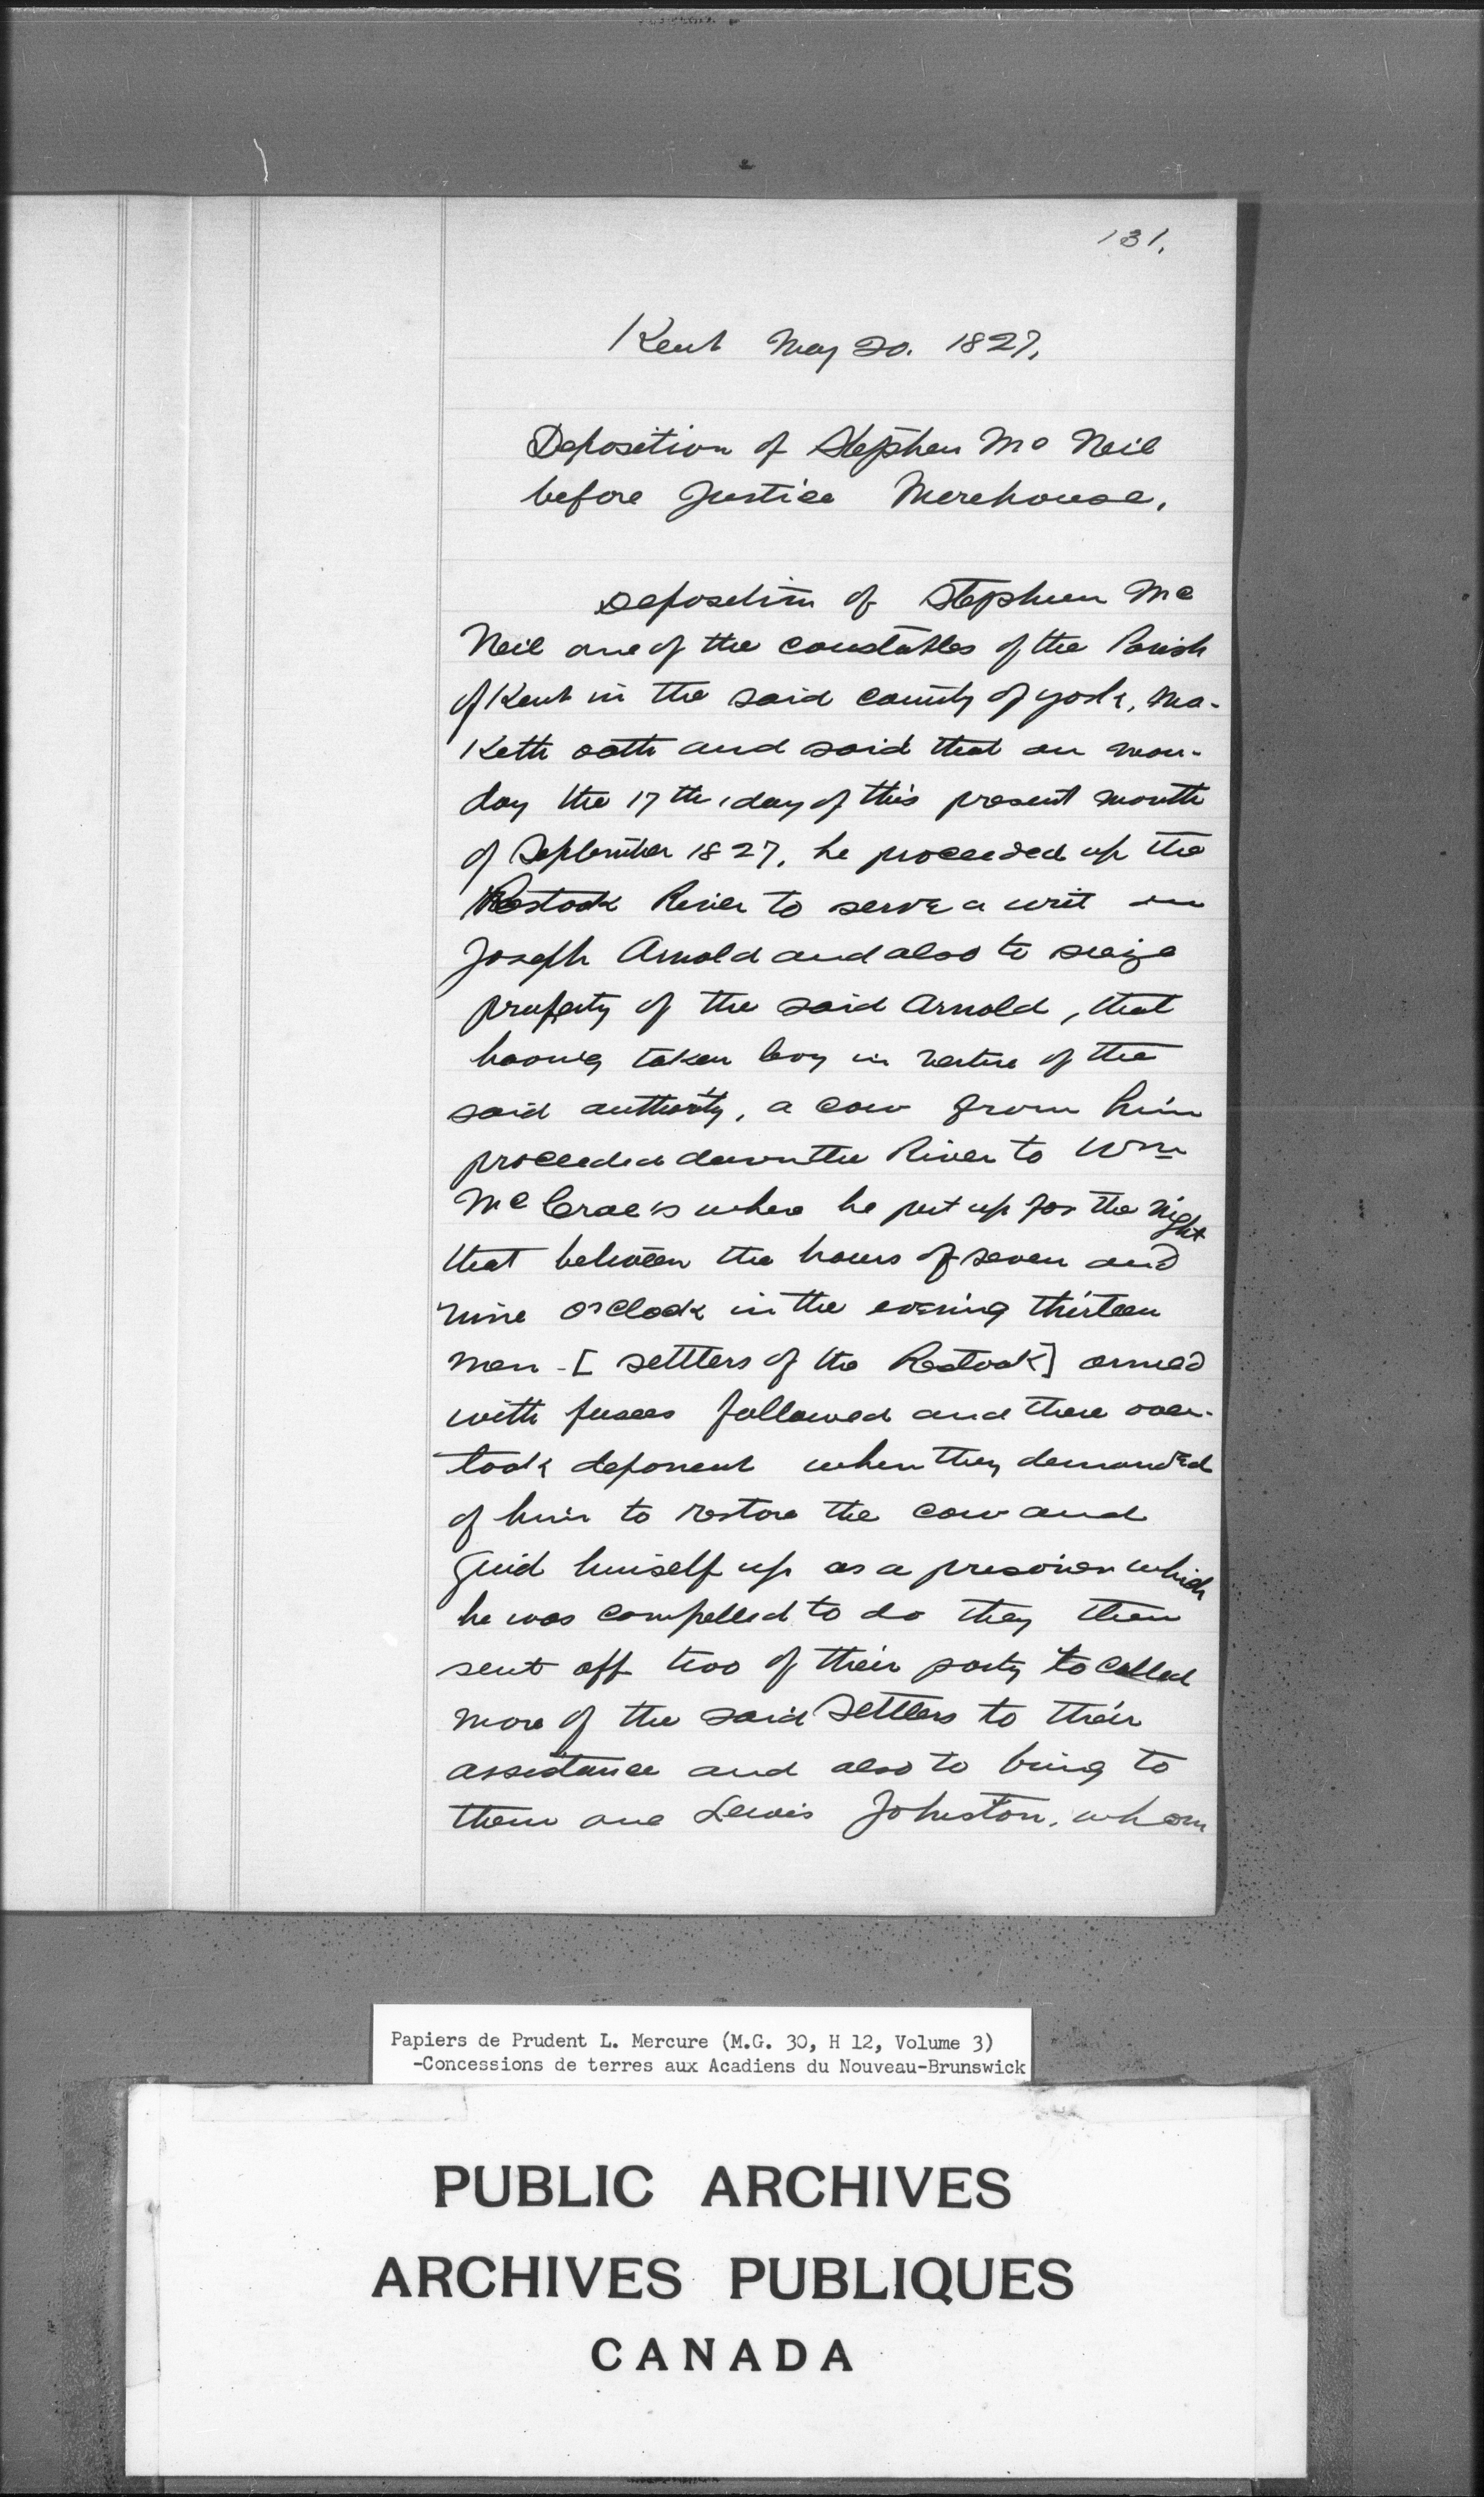 131.
Kent May 20. 1827.
Deposition of Stephen Mc Neil
before Justice Morehouse.
Deposition of Stephen Mc
Neil one of the constables of the Parish
of Kent in the said county of york, ma-
keth oath and said that on mon-
day the 17th, day of this present month
of September 1827, he proceeded up the
Restook River to serve a writ on
Joseph Arnold and also to seize
property of the said Arnold, that
having taken levy in vertue of the
said authority, a cow from him
proceeded down the River to Wm
McCrae's where he put up for the night
that between the hours of seven and
nine o'clock in the evening thirteen
men - [settlers of the Restook] armed
with fusees followed and there over-
took deponent when they demanded
of him to restore the cow and
himself up as a prisoner which
he was compelled to do they then
sent off two of their party to
more of the said settlers to their
assistance and also to bring to
them one Lewis Johnston, whom
Papiers de Prudent L. Mercure (M.G. 30, H 12, Volume 3)
-Concessions de terres aux Acadiens du Nouveau-Brunswick
PUBLIC ARCHIVES
ARCHIVES PUBLIQUES
CANADA